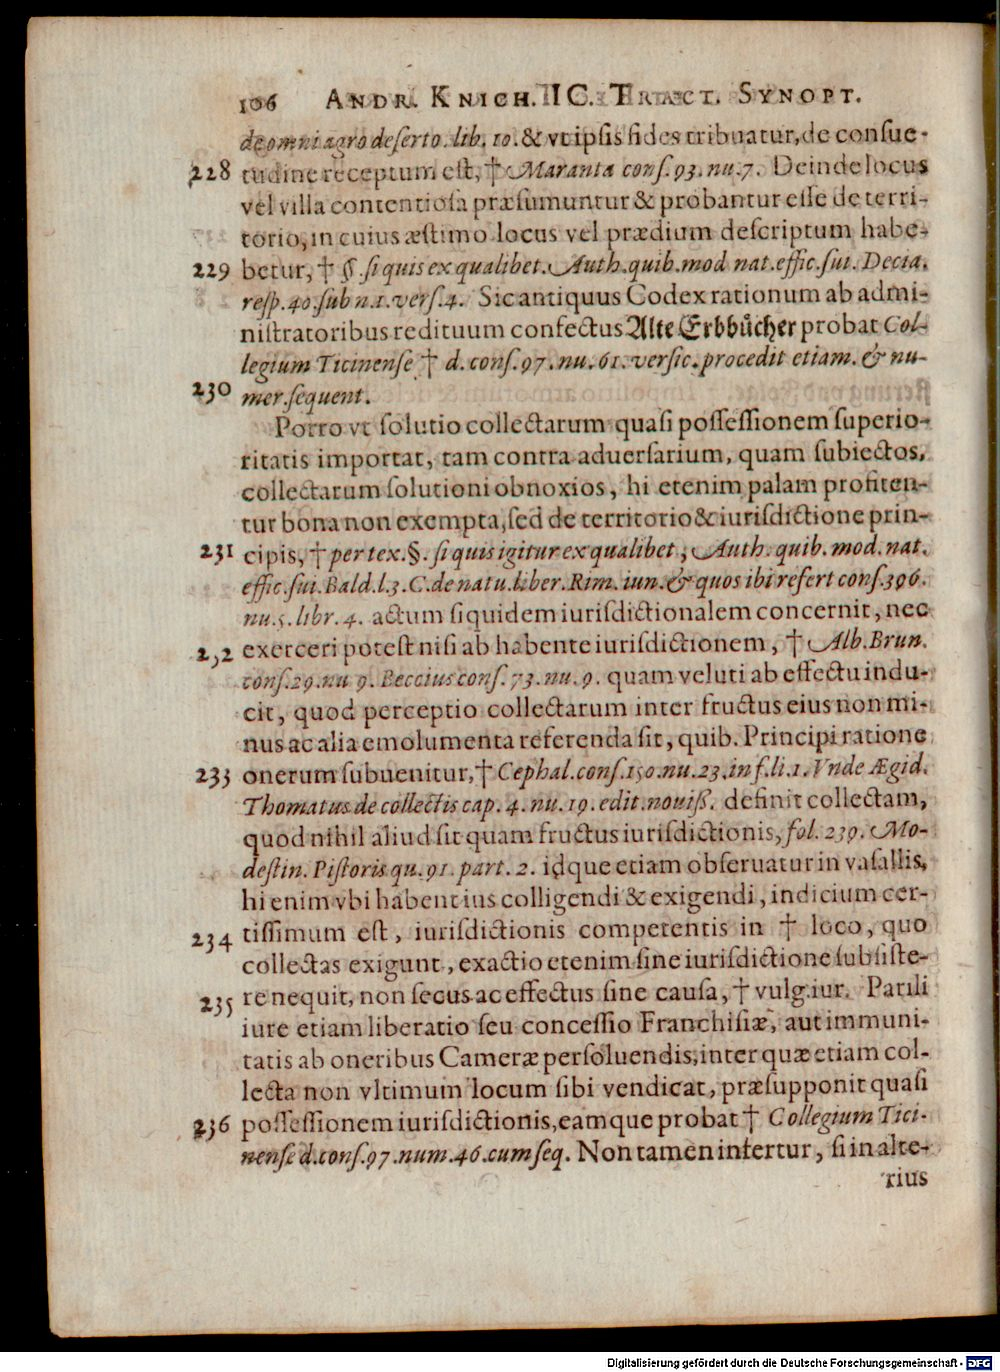 106 ANDR. KNICH. IC. TRACT. SYNOPT.
de omni agro deserto. lib. 10. & vt ipsis fides tribuatur, de consue-
228 tudine receptum est, † Maranta cons. 93. nu. 7. Deinde locus
vel villa contentiosa præsumuntur & probantur esse de terri-
torio, in cuius æstimo locus vel prædium descriptum habe-
229 betur, † §. si quis ex qualibet. Auth. quib. mod nat. effic. sui. Decia.
resp. 40. sub n. 1. vers. 4. Sic antiquus Codex rationum ab admi-
nistratoribus redituum confectus Alte Erbbücher probat Col-
legium Ticinense † d. cons. 97. nu. 61. versic. procedit etiam. & nu-
230 mer. sequent.
Porro vt solutio collectarum quasi possessionem superio-
ritatis importat, tam contra aduersarium, quam subiectos,
collectarum solutioni obnoxios, hi etenim palam profiten-
tur bona non exempta, sed de territorio & iurisdictione prin-
231 cipis, † per tex. §. si quis igitur ex qualibet, Auth. quib. mod. nat.
effic. sui. Bald. l. 3. C. de natu. liber. Rim. iun. & quos ibi refert cons. 396.
nu. 5. libr. 4. actum siquidem iurisdictionalem concernit, nec
232 exerceri potest nisi ab habente iurisdictionem, † Alb. Brun.
cons. 29. nu 9. Beccius cons. 73. nu. 9. quam veluti ab effectu indu-
cit, quod perceptio collectarum inter fructus eius non mi-
nus ac alia emolumenta referenda sit, quib. Principi ratione
233 onerum subuenitur, † Cephal. cons. 150. nu. 23. in f. li. 1. Vnde Ægid.
Thomatus de collectis cap. 4. nu. 19. edit. nouiß. definit collectam,
quod nihil aliud sit quam fructus iurisdictionis, fol. 239. Mo-
destin. Pistoris qu. 91. part. 2. idque etiam obseruatur in vasallis,
hi enim vbi habent ius colligendi & exigendi, indicium cer-
234 tissimum est, iurisdictionis competentis in † loco, quo
collectas exigunt, exactio etenim sine iurisdictione subsiste-
235 re nequit, non secus ac effectus sine causa, † vulg. iur. Parili
iure etiam liberatio seu concessio Franchisiæ, aut immuni-
tatis ab oneribus Cameræ persoluendis, inter quæ etiam col-
lecta non vltimum locum sibi vendicat, præsupponit quasi
236 possessionem iurisdictionis, eamque probat † Collegium Tici-
nense d. cons. 97. num. 46. cum seq. Non tamen infertur, si in alte-
rius
Digitalisierung gefördert durch die Deutsche Forschungsgemeinschaft - DFG